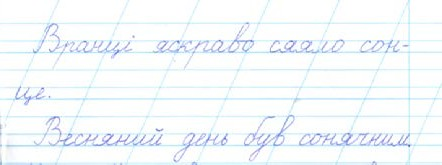 Вранці яскраво сяяло сон-
це.
Весняний день був сонячним.